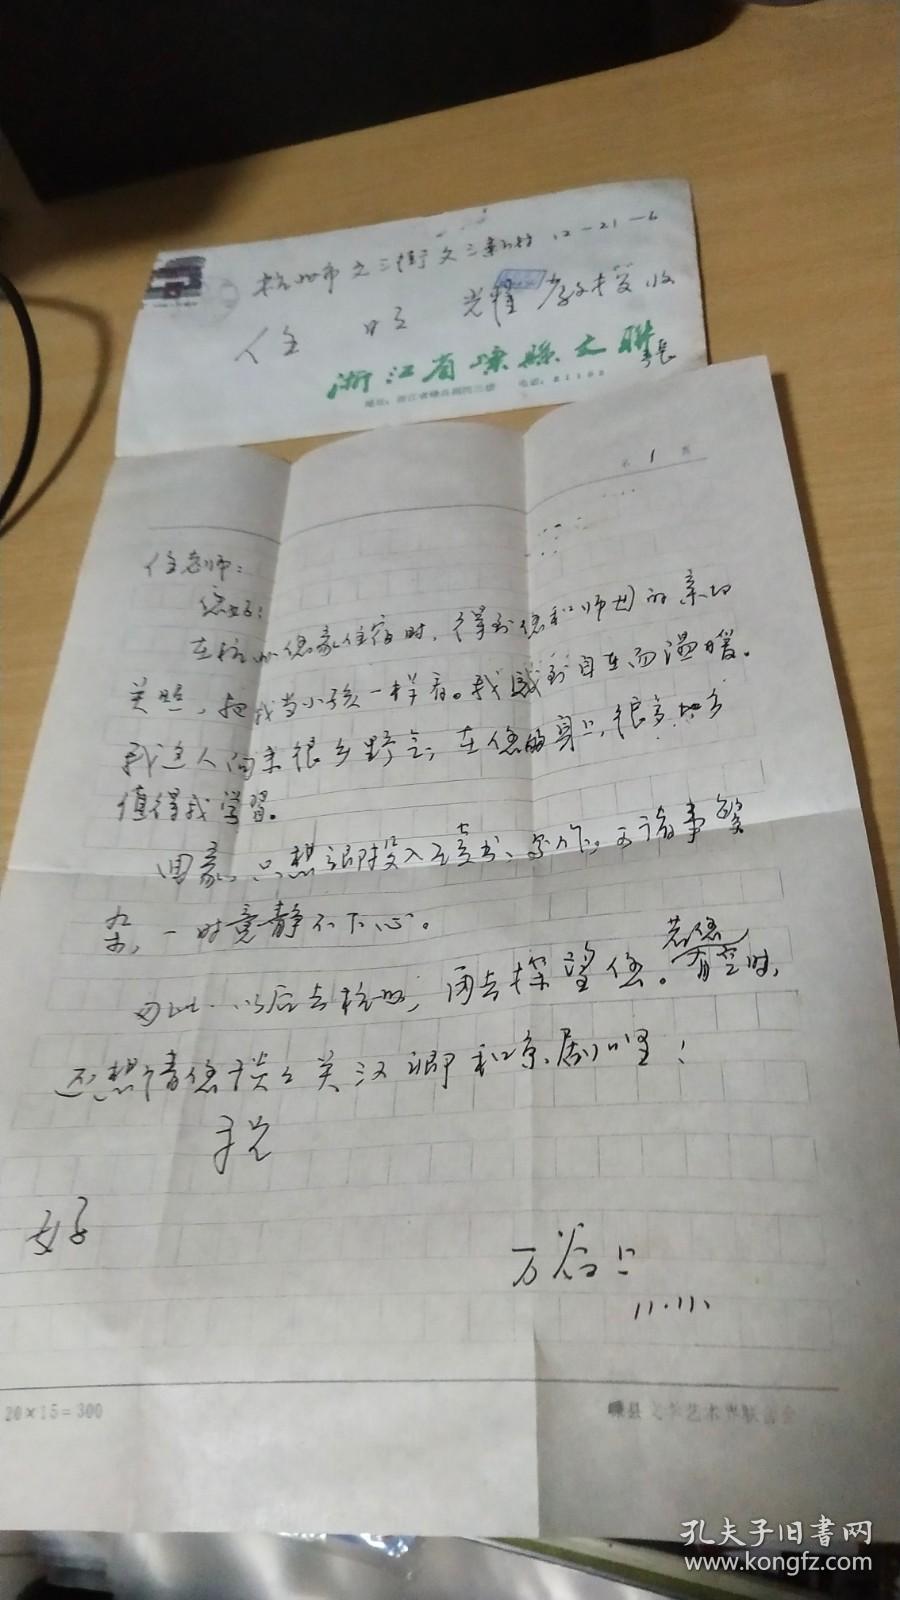 杭州市文三街文三新村 12-21-6
任 旺 耀 教授收
浙江省嵊縣文聯
第 1 页
任老师:
您好!
在杭州您家住宿时,得到您和师母的亲切
关照,把我当小孩一样看。我感到自在而温暖。
我这人向来很乡野气,在您的身上,很多地方
值得我学習。
回家,只想立即投入读书、写作,可诸事繁
杂,一时竟静不下心。
以后去杭州,再去探望您。若您有空时,
还想请您谈谈关汉卿和京剧呢!
祝
好
万 上
11.11.
20×15=300
嵊县文学艺术界联合会
孔夫子旧书网
www.kongfz.com